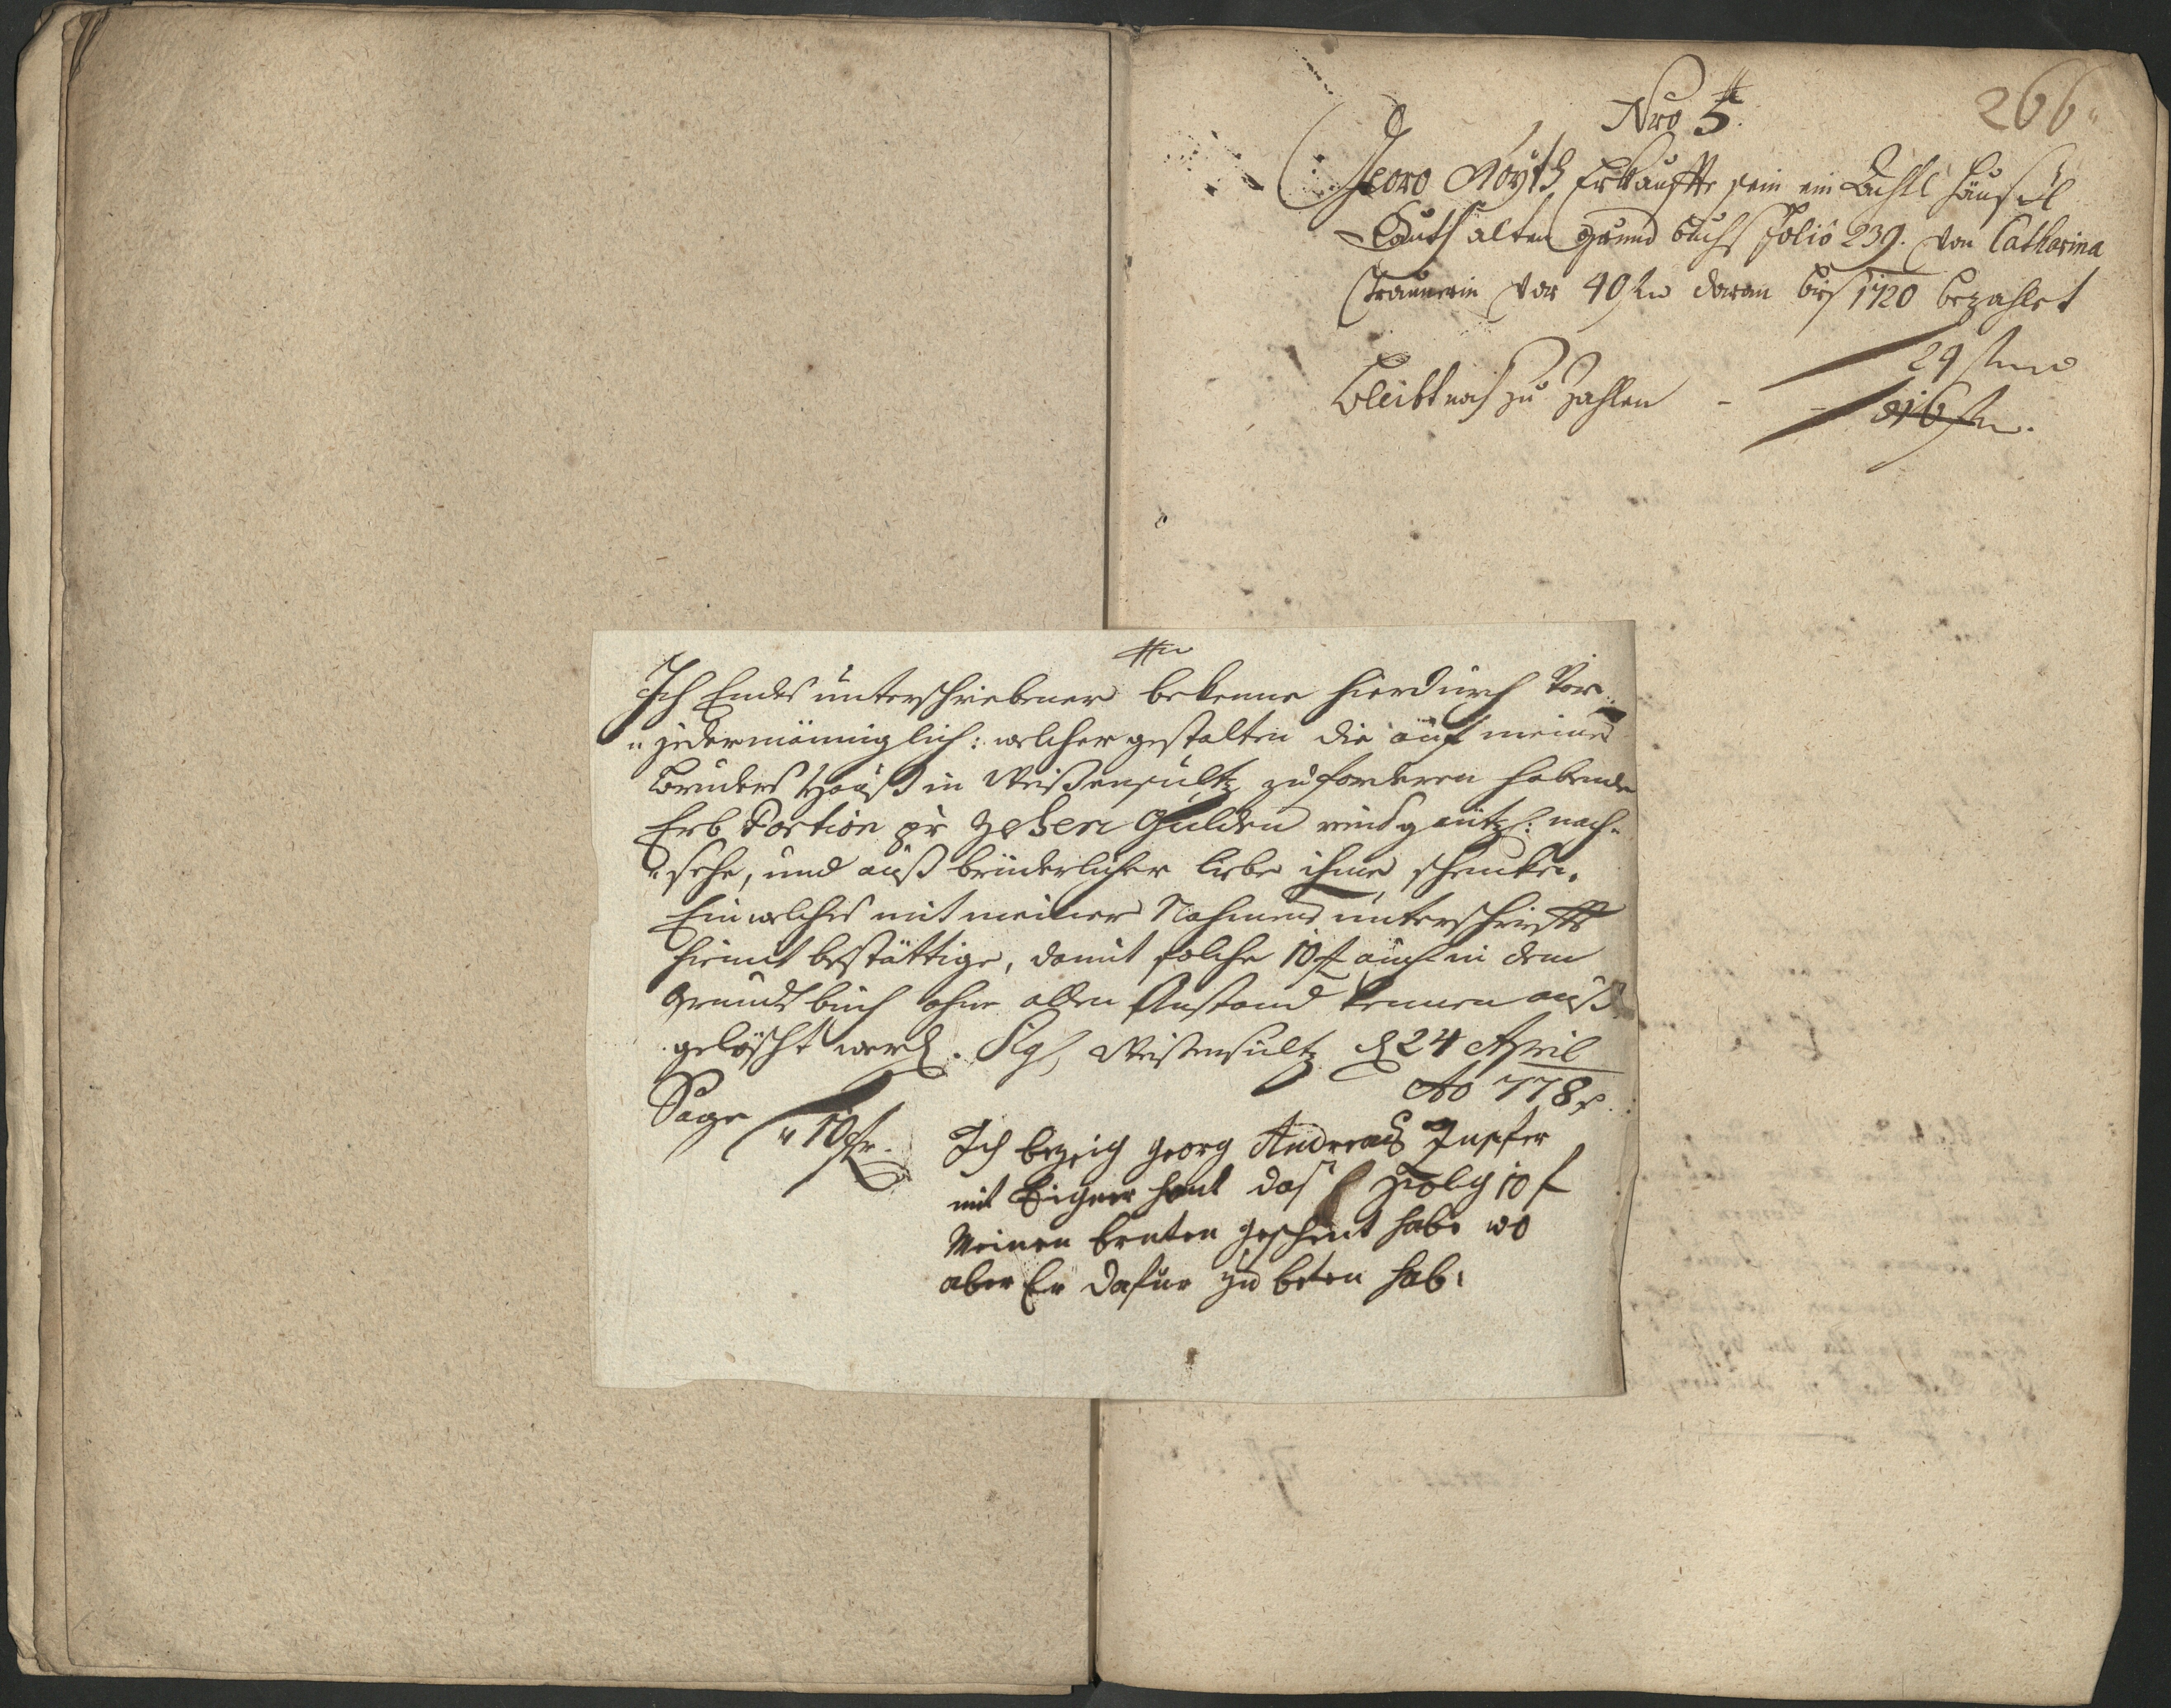 266
Nro 5.
Georg Voÿth Erkauffte sein ein Achtl Häusl
Lauth alten grund buchs Folio 239. von Catharina
vor 40 fl daran bis 1720 bezahlet
24 fl
bleibt noch zu zahlen - - 16 fl.
Ich Endes unterschriebener bekenne hierdurch vor
jedermänniglich: welcher gestalten die auf meines
Bruders Hauß in Weißensultz zuforderen habende
Erb Portion pr Zehen Gulden gäntzl: nach-
sehe, und auß brüderlicher liebe ihme schencke.
Ein welches mit meiner Nahmens unterschrifft
hiemit bestättige, damit solche 10 fl auch in dem
Grundt buch ohne allen Anstand kennen auß
gelöscht werd. Sigl, Weißensultz d 24 April
Ao 778
Sage 10 fl.
Ich bezeig georg Andreas
mit Eigner hant das 10 f
Meinen bruten geschent habe wo
aber Er dafür zu beten hab.